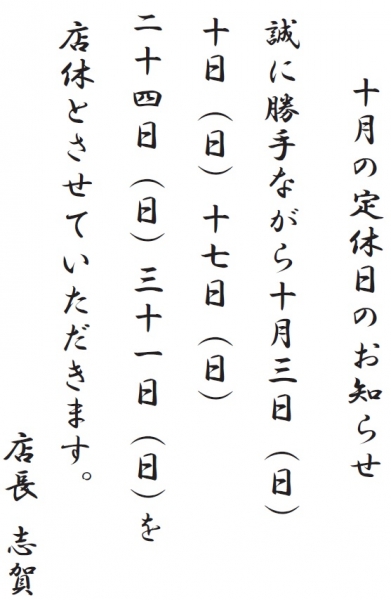 十月の定休日のお知らせ
誠に勝手ながら十月三日（日）
十日（日）十七日（日）
二十四日（日）三十一日（日）を
店休とさせていただきます。
店長 志賀